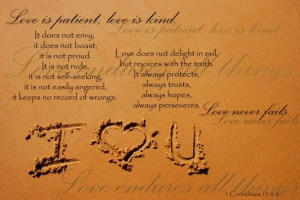 Love is patient, love is kind.
Love is patient, love is kind
It does not envy,
it does not boast,
it is not proud.
It is not rude,
it is not self-seeking,
it is not easily angered,
it keeps no record of wrongs.
Love does not delight in evil,
but rejoices with the truth.
It always protects,
always trusts,
always hopes,
always perseveres.
Love never fails.
Love never fails
Love endures all things
I ♥ U
Love endures all things
1 Corinthians 13:4-8